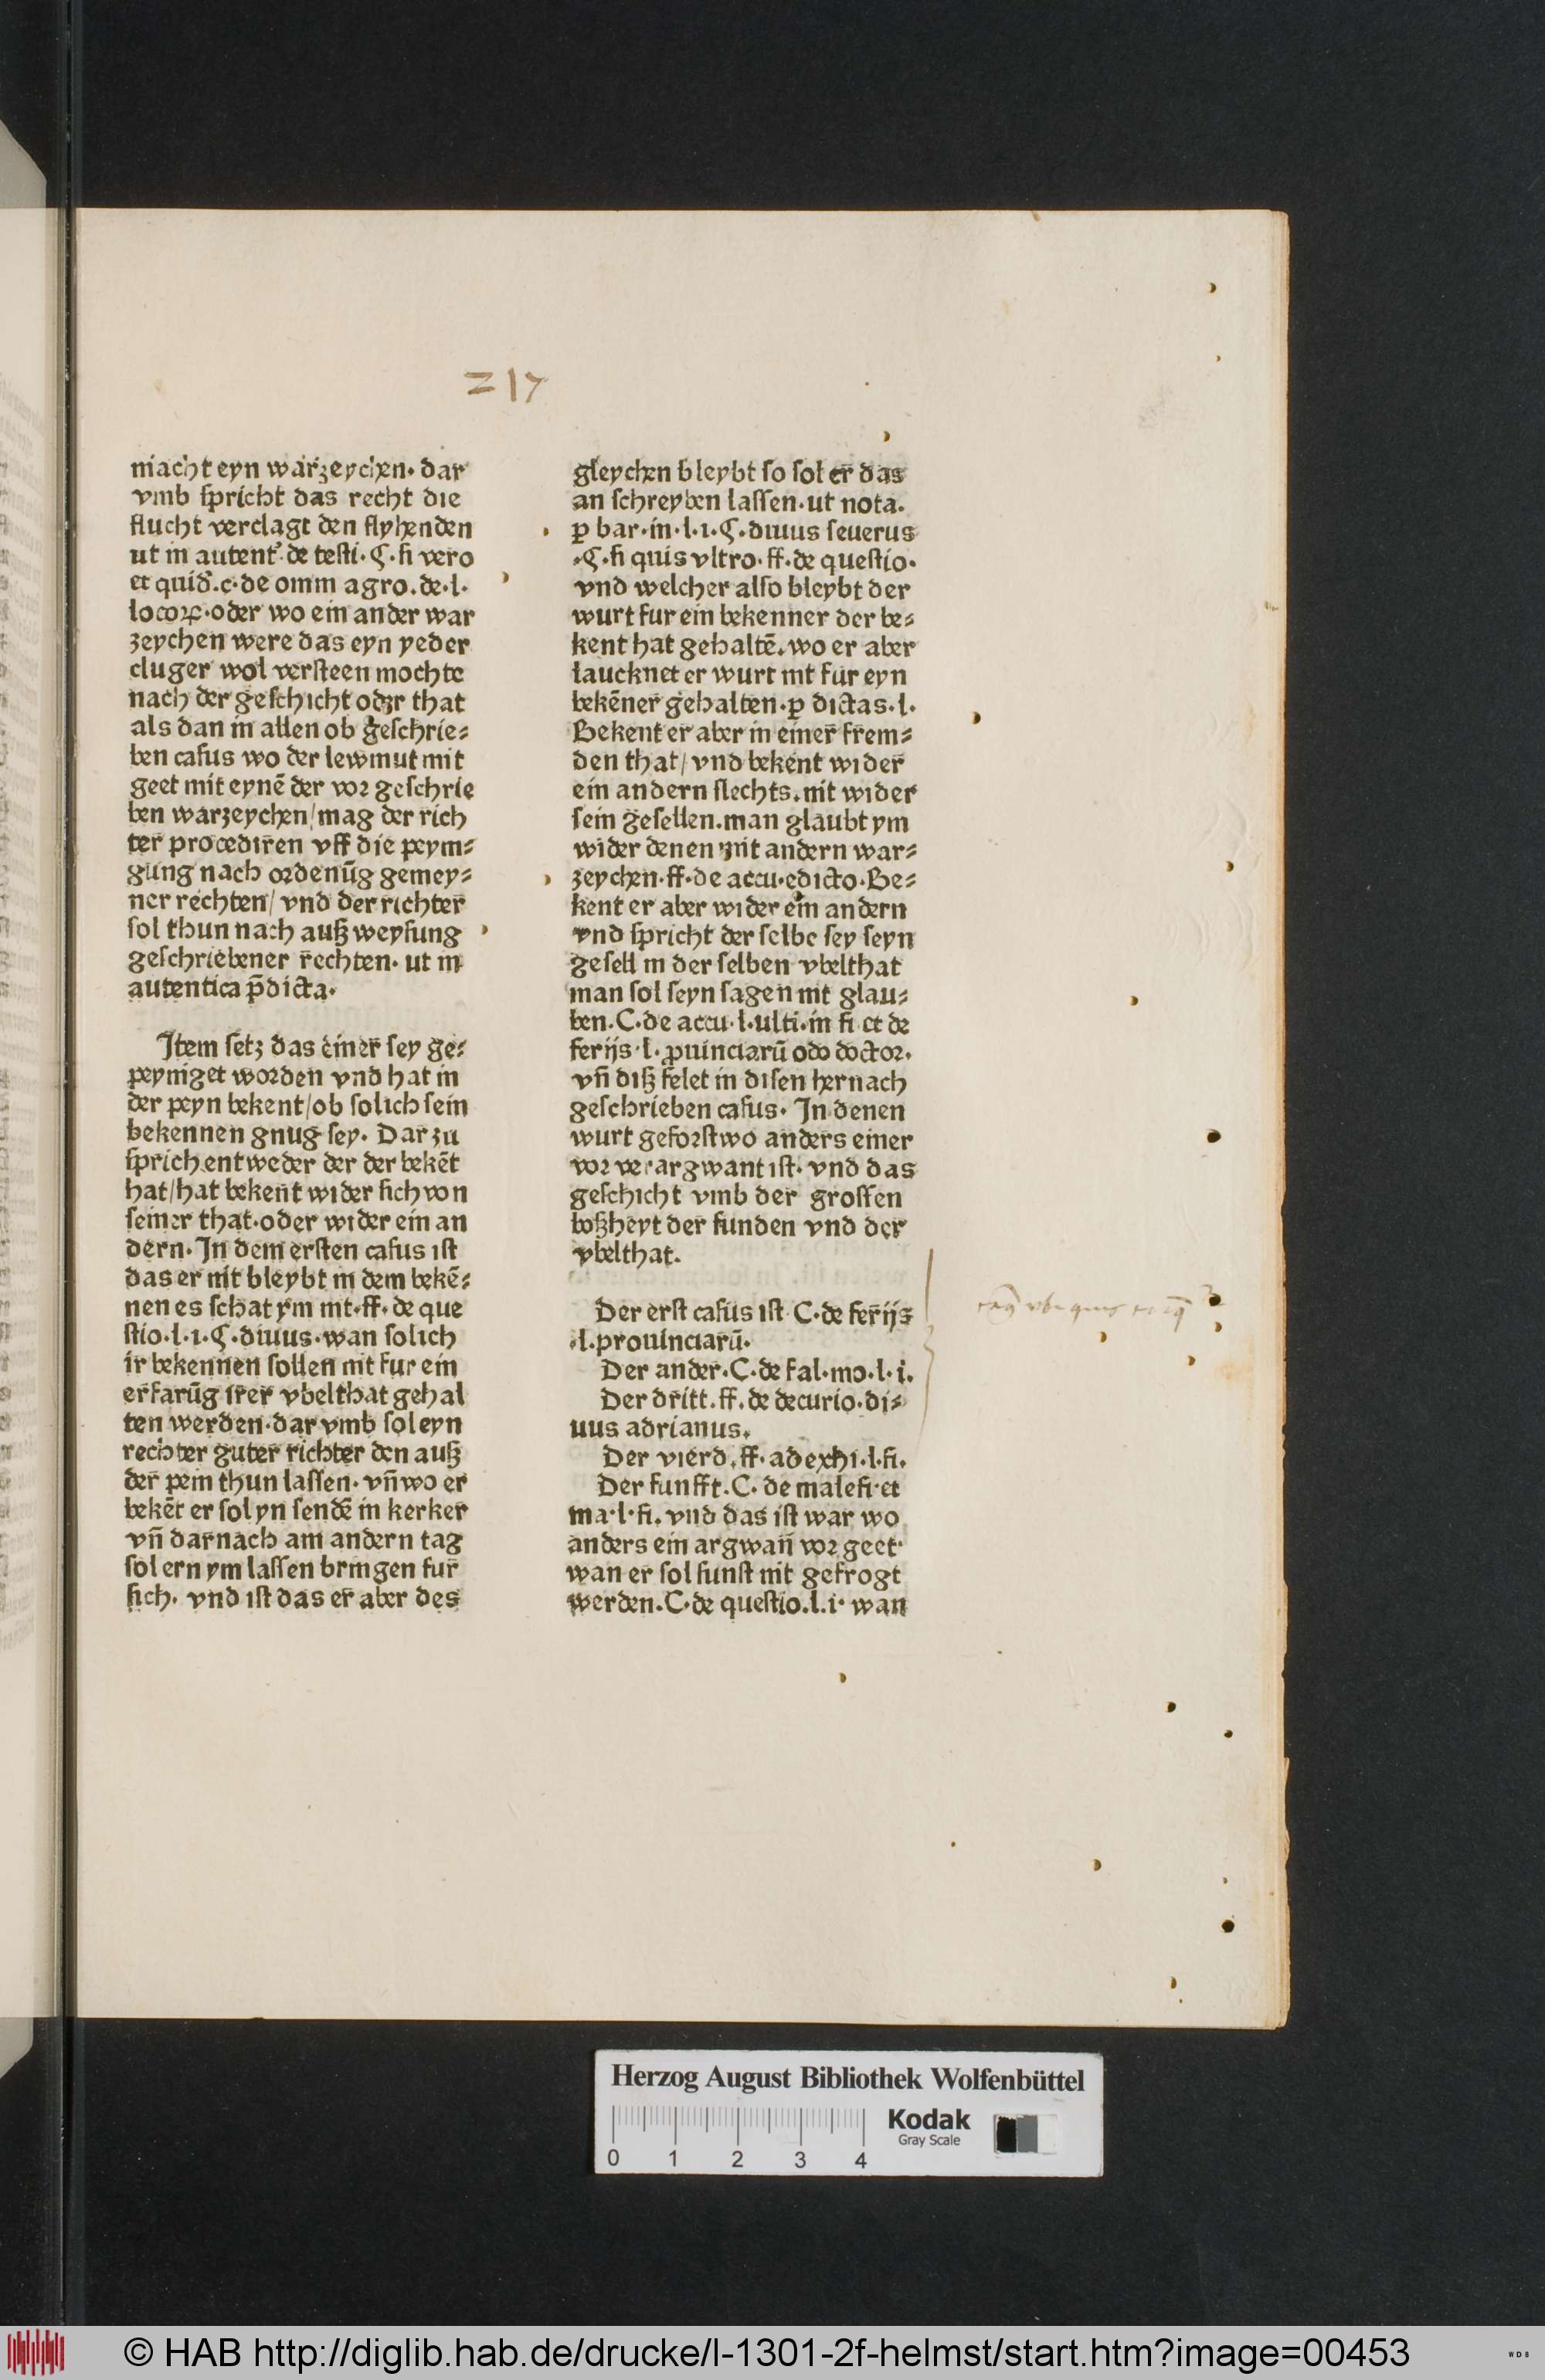 217
macht eyn warzeychen· dar
vmb ſpricht das recht die
flucht verclagt den flyhenden
ut in autent᷒· de teſti· ꝯ· ſi vero
et quid̄.c·de omm agro.de·l·
locoꝝ·oder wo ein ander war
zeychen were das eyn yeder
cluger wol verſteen mochte
nach der geſchicht oder that
als dan in allen ob geſchrie⸗
ben caſus wo der lewmut mit
geet mit eynē der voꝛ geſchrie
ben warzeychen/mag der rich
ter procediren vff die peym⸗
gung nach oꝛdenūg gemey⸗
ner rechten/ vnd der richter
ſol thun nach auß weyſung
geſchriebener rechten· ut in
autentica p̄dicta·
Item ſetz das einer ſey ge⸗
peyniget woꝛden vnd hat in
der peyn bekent/ob ſolich ſein
bekennen gnug ſey· Dar zu
ſprich.entweder der der bekēt
hat/hat bekent wider ſich von
ſeiner that·oder wider ein an
dern· In dem erſten caſus iſt
das er nit bleybt in dem bekē⸗
nen es ſchat ym nit·ff· de que
ſtio·l·1·ꝯ·diuus·wan ſolich
ir bekennen ſollen nit fur ein
erfarūg irer vbelthat gehal
ten werden·dar vmb ſol eyn
rechter guter richter den auß
der pein thun laſſen· vn̄ wo er
bekēt er ſol yn ſendē in kerker
vn̄ darnach am andern tag
ſol ern ym laſſen bringen fur
ſich· vnd iſt das er aber des
gleychen bleybt ſo ſol er das
an ſchreyben laſſen·ut nota.
ꝑ bar·in·l·1·ꝯ·diuus ſeuerus
·ꝯ·ſi quis vltro·ff·de queſtio·
vnd welcher alſo bleybt der
wurt fur ein bekenner der be⸗
kent hat gehaltē.wo er aber
laucknet er wurt nit fur eyn
bekēner gehalten·ꝑ dictas·l·
Bekent er aber in einer frem⸗
den that/ vnd bekent wider
ein andern ſlechts.nit wider
ſein geſellen.man glaubt ym
wider denen mit andern war⸗
zeychen·ff·de accu·edicto·Be⸗
kent er aber wider ein andern
vnd ſpricht der ſelbe ſey ſeyn
geſell in der ſelben vbelthat
man ſol ſeyn ſagen nit glau⸗
ben.C·de accu·l·ulti·in fi et de
ferijs·l·ꝓuinciarū odo doctoꝛ·
vn̄ diß felet in diſen hernach
geſchrieben caſus· In denen
wurt gefoꝛſt wo anders einer
voꝛ verargwant iſt· vnd das
geſchicht vmb der groſſen
boßheyt der ſunden vnd der
vbelthat·
Der erſt caſus iſt C·de ferijs
·l·prouinciarū·
Der ander·C·de fal·mo·l·i·
Der dritt.ff.de decurio·di⸗
uus adrianus.
Der vierd.ff·ad exhi·l·fi.
Der funfft.C·de malefi·et
ma·l·fi.vnd das iſt war wo
anders ein argwan̄ voꝛ geet·
wan er ſol ſunſt nit gefrogt
werden.C·de queſtio.l.i· wan
Herzog August Bibliothek Wolfenbüttel
Kodak
Gray Scale
0 1 2 3 4
© HAB http://diglib.hab.de/drucke/l-1301-2f-helmst/start.htm?image=00453
WDB